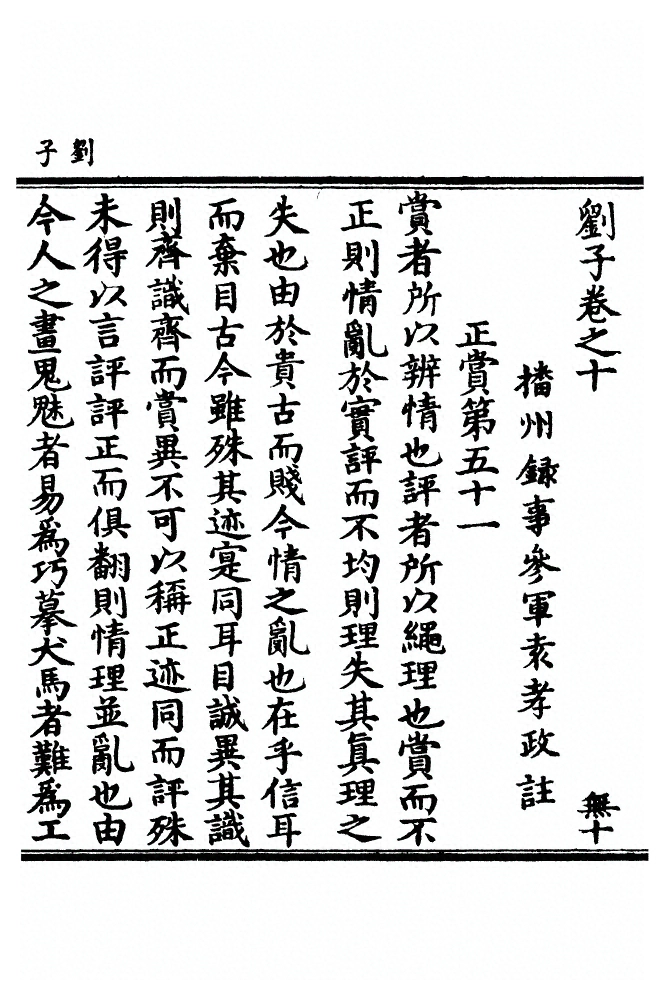 劉子
劉子卷之十
無十
播州録事參軍袁孝政註
正賞第五十一
賞者所以辨情也評者所以繩理也賞而不
正則情亂於實評而不均則理失其眞理之
失也由於貴古而賤今情之亂也在乎信耳
而棄目古今雖殊其迹寔同耳目誠異其識
則齊識齊而賞異不可以稱正迹同而評殊
未得以言評評正而俱翻則情理並亂也由
今人之畫鬼魅者易爲巧摹犬馬者難爲工